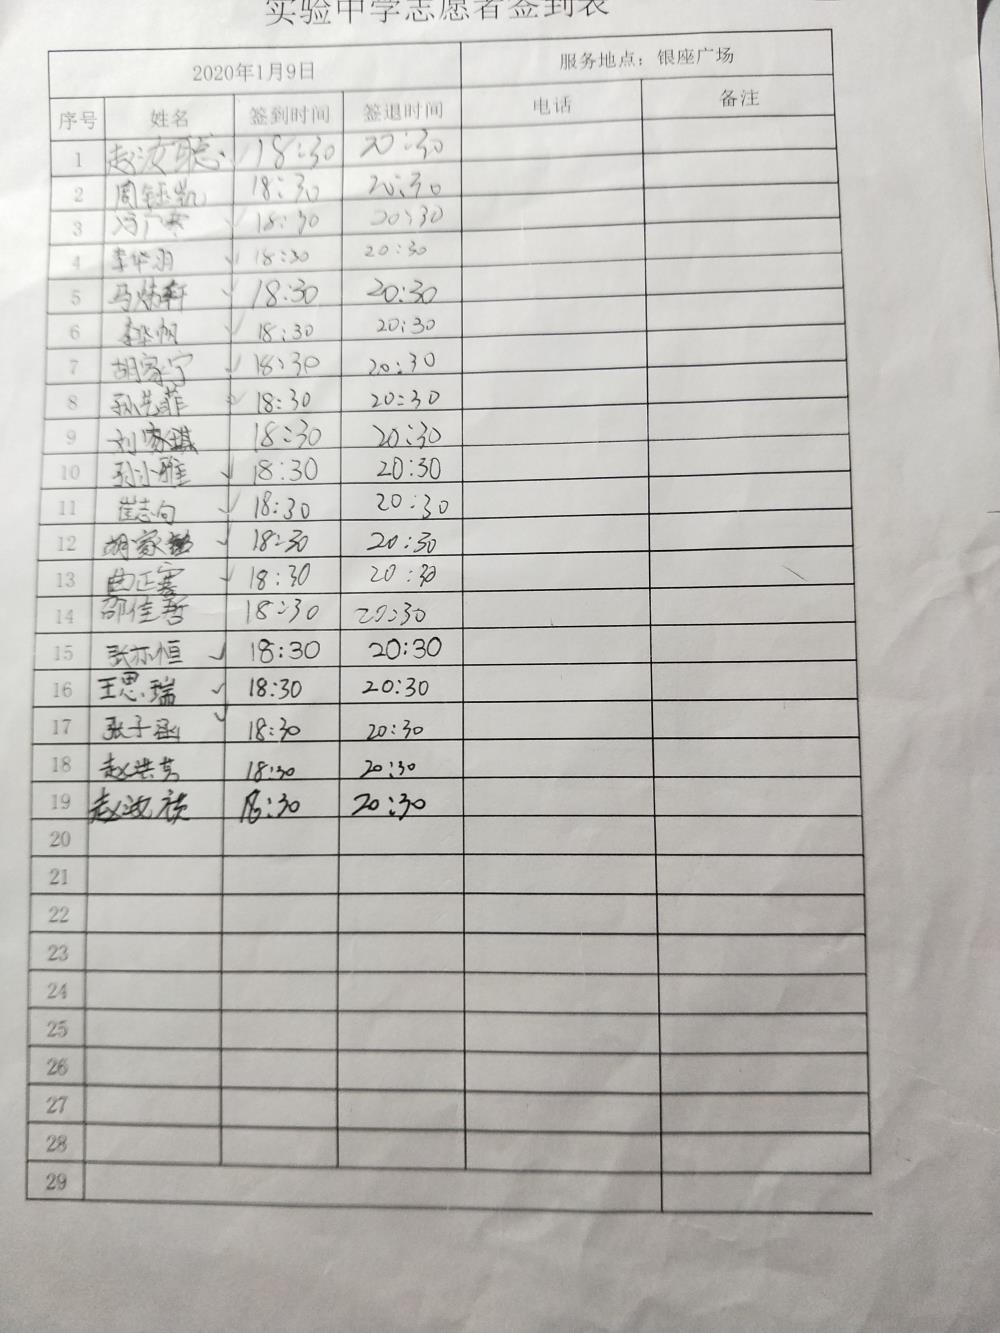 实验中学志愿者签到表
2020年1月9日 服务地点：银座广场
序号 姓名 签到时间 签退时间 电话 备注
1 赵汝聪 18:30 20:30
2 周钰凯 18:30 20:30
3 冯广寒 18:30 20:30
4 李华羽 18:30 20:30
5 马炳轩 18:30 20:30
6 李华帆 18:30 20:30
7 胡家宁 18:30 20:30
8 孙艺菲 18:30 20:30
9 刘家琪 18:30 20:30
10 孙小雅 18:30 20:30
11 崔志向 18:30 20:30
12 胡家 18:30 20:30
13 曲正骞 18:30 20:30
14 邵佳哲 18:30 20:30
15 张亦恒 18:30 20:30
16 王思瑞 18:30 20:30
17 张子涵 18:30 20:30
18 赵洪艺 18:30 20:30
19 赵汝祺 18:30 20:30
20
21
22
23
24
25
26
27
28
29